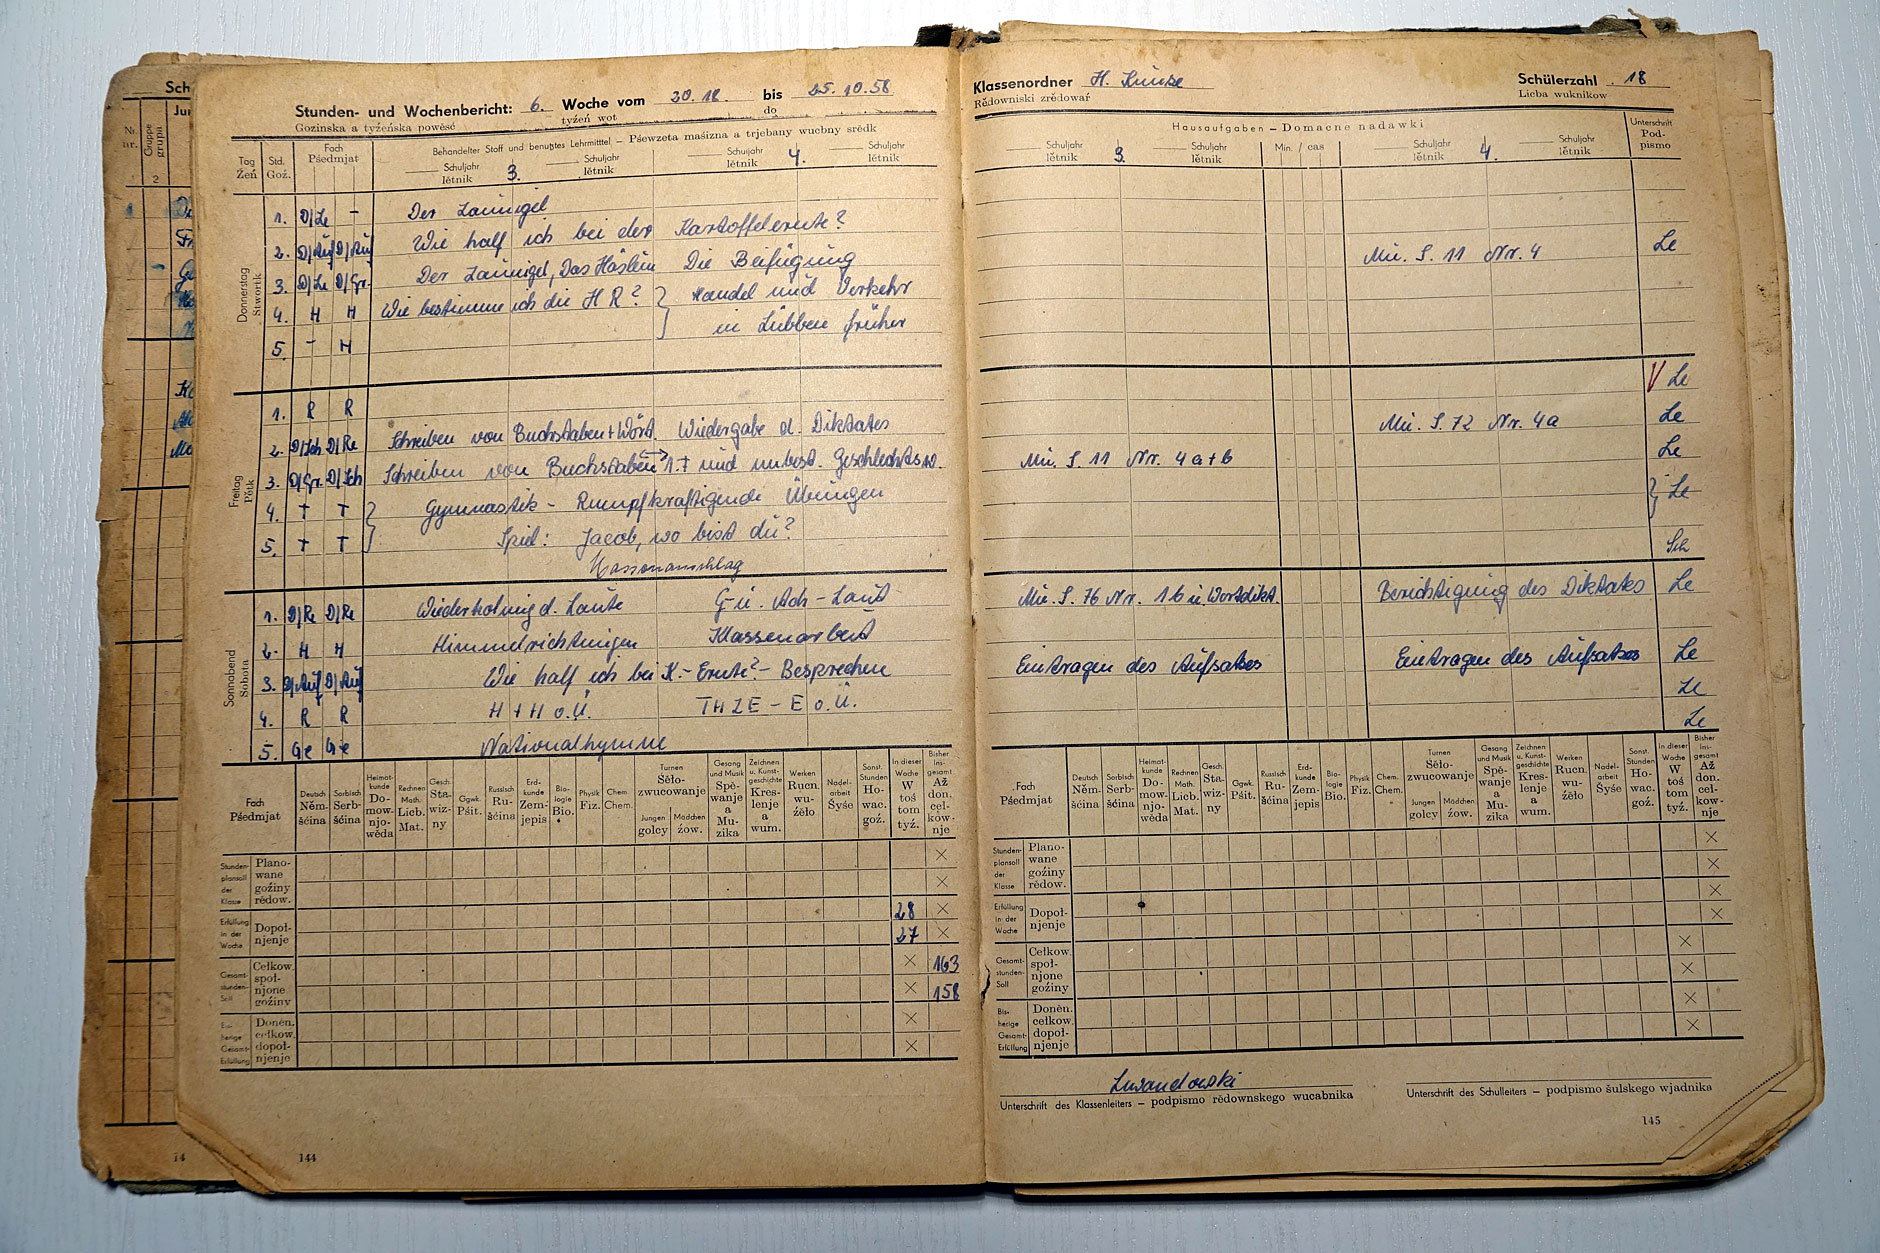 Stunden- und Wochenbericht: 6. Woche vom 20.10. bis 25.10.58
Gozinska a tyźeńska powěsć tyźeń wot do
Tag Źeń
Std. Goź.
Fach Pśedmjat
Behandelter Stoff und benutztes Lehrmittel – Pśewzeta maśizna a trjebany wucbny srědk
Schuljahr lětnik 3. Schuljahr lětnik
Schuljahr lětnik 4. Schuljahr lětnik
Donnerstag Stwórtk
1. D/Le – Der Zaunigel
2. D/Auf D/Auf Wie half ich bei der Kartoffelernte?
3. D/Le D/Gr. Der Zaunigel, Das Häslein Die Beifügung
4. H H Wie bestimme ich die H R? Handel und Verkehr
5. – H in Lübben früher
Freitag Pětk
1. R R
2. D/Sch D/Re Schreiben von Buchstaben + Wört. Wiedergabe d. Diktates
3. D/Gr. D/Sch Schreiben von Buchstaben 1. + und unbest. Geschlechtsw.
4. T T Gymnastik – Rumpfkräftigende Übungen
5. T T Spiel: Jacob, wo bist du?
Massenanschlag
Sonnabend Sobota
1. D/Re D/Re Wiederholung d. Laute G u. Ach-Laut
2. H H Himmelrichtungen Klassenarbeit
3. D/Auf D/Auf Wie half ich bei K.-Ernte? – Besprechen
4. R R H + H o.Ü. THZE – E o.Ü.
5. Ge Ge Nationalhymne
Fach Pśedmjat
Deutsch Němšćina
Sorbisch Serbšćina
Heimatkunde Domownjowěda
Rechnen Math. Licb. Mat.
Gesch. Stawizny
Ggwk. Pśit.
Russisch Rušćina
Erdkunde Zemjepis
Biologie Bio.
Physik Fiz.
Chem. Chem.
Turnen Śěłozwucowanje
Jungen golcy
Mädchen źow.
Gesang und Musik Spěwanje a Muzika
Zeichnen u. Kunstgeschichte Kreslenje a wum.
Werken Rucn. wuźěło
Nadelarbeit Šyśe
Sonst. Stunden Howac. goź.
In dieser Woche W toś tom tyź.
Bisher insgesamt Až don. celkownje
Stundenplansoll der Klasse Planowane goźiny rědow. × ×
Erfüllung in der Woche Dopołnjenje 28 × 27 ×
Gesamtstunden-Soll Celkow. społnjone goźiny × 163 × 158
Bisherige Gesamt-Erfüllung Doněn. celkow. dopołnjenje × ×
144
14
Klassenordner H. Kunze Schülerzahl 18
Rědowniski zrědowaŕ Licba wuknikow
Hausaufgaben – Domacne nadawki
Unterschrift Podpismo
Schuljahr lětnik 3. Schuljahr lětnik
Min. / cas
Schuljahr lětnik 4. Schuljahr lětnik
Mu. S. 11 Nr. 4 Le
Le
Mu. S. 72 Nr. 4a Le
Mu. S. 11 Nr. 4 a + b Le
Le
Sch
Mu. S. 76 Nr. 1b u. Wortdikt. Berichtigung des Diktates Le
Eintragen des Aufsatzes Eintragen des Aufsatzes Le
Le
Le
Fach Pśedmjat
Deutsch Němšćina
Sorbisch Serbšćina
Heimatkunde Domownjowěda
Rechnen Math. Licb. Mat.
Gesch. Stawizny
Ggwk. Pśit.
Russisch Rušćina
Erdkunde Zemjepis
Biologie Bio.
Physik Fiz.
Chem. Chem.
Turnen Śěłozwucowanje
Jungen golcy
Mädchen źow.
Gesang und Musik Spěwanje a Muzika
Zeichnen u. Kunstgeschichte Kreslenje a wum.
Werken Rucn. wuźěło
Nadelarbeit Šyśe
Sonst. Stunden Howac. goź.
In dieser Woche W toś tom tyź.
Bisher insgesamt Až don. celkownje
Stundenplansoll der Klasse Planowane goźiny rědow. × ×
Erfüllung in der Woche Dopołnjenje × ×
Gesamtstunden-Soll Celkow. społnjone goźiny × ×
Bisherige Gesamt-Erfüllung Doněn. celkow. dopołnjenje × ×
Lewandowski
Unterschrift des Klassenleiters – podpismo rědownskego wucabnika
Unterschrift des Schulleiters – podpismo šulskego wjadnika
145